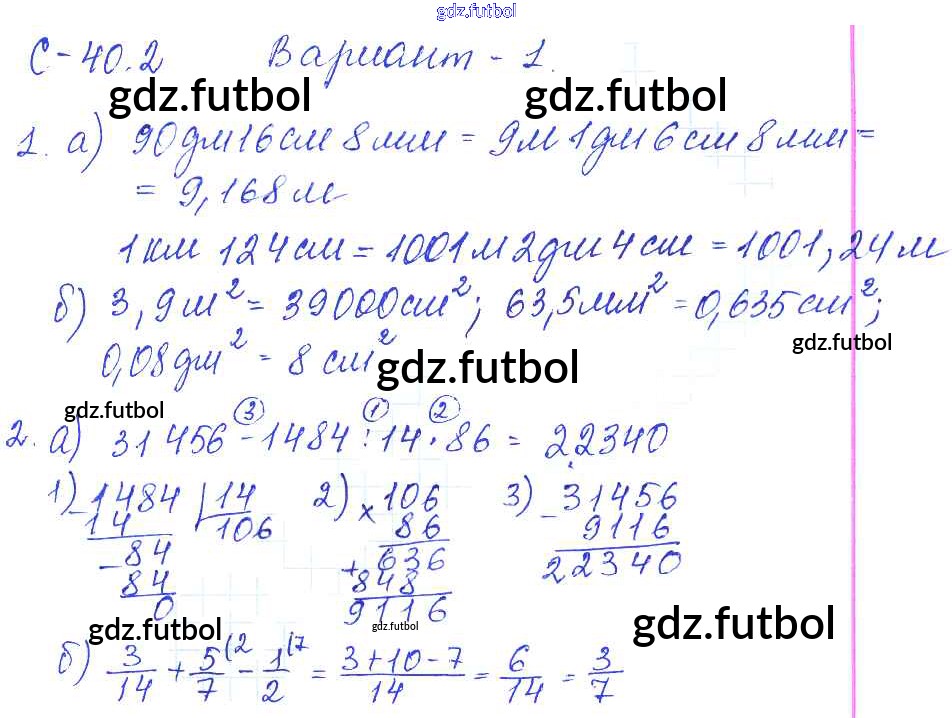 gdz.futbol
С-40.2 Вариант - 1.
gdz.futbol gdz.futbol
1. а) 90дм16см 8мм = 9м 1дм 6см 8мм =
= 9,168м
1км 124см = 1001м 2дм 4см = 1001,24м
б) 3,9м² = 39000см²; 63,5мм² = 0,635см²;
gdz.futbol
0,08дм² = 8см²
gdz.futbol
gdz.futbol
③ ① ②
2. а) 31456 - 1484 : 14 · 86 = 22340
1) 1484 | 14 2) × 106 3) 31456
14 106 86 - 9116
- 84 + 636 22340
84 848
0 9116
gdz.futbol gdz.futbol gdz.futbol
б) 3/14 + 5/7 (2 - 1/2 (7 = 3+10-7/14 = 6/14 = 3/7